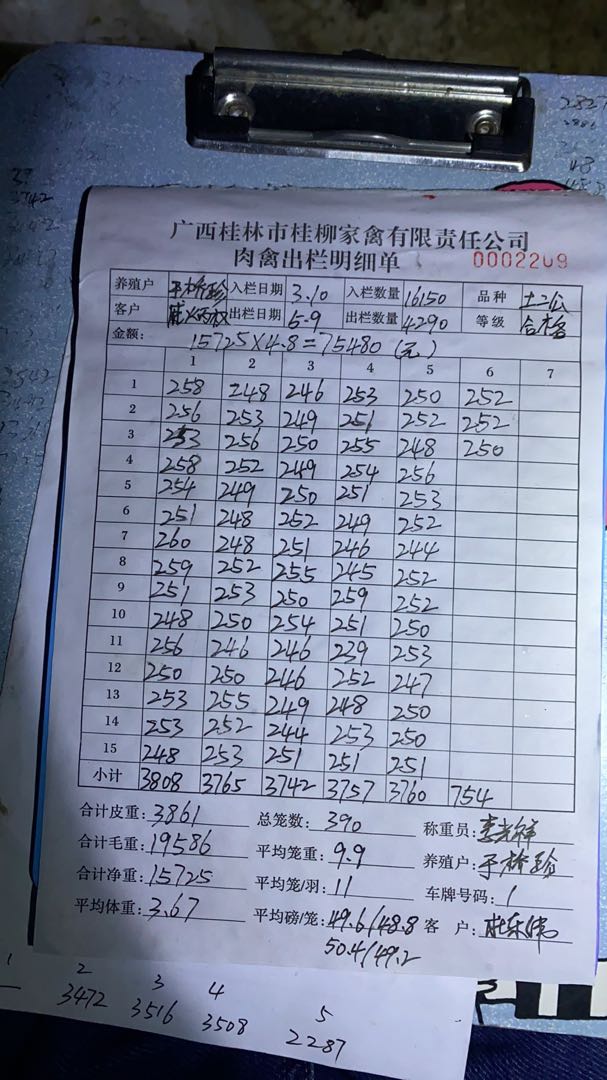 广西桂林市桂柳家禽有限责任公司
肉禽出栏明细单 0002209
养殖户 入栏日期 3.10 入栏数量 16150 品种 土二公
客户 出栏日期 5.9 出栏数量 4290 等级 合格
金额: 15725×4.8=75480 (元)
1 2 3 4 5 6 7
1 258 248 246 253 250 252
2 256 253 249 251 252 252
3 253 256 250 255 248 250
4 258 252 249 254 256
5 254 249 250 251 253
6 251 248 252 249 252
7 260 248 251 246 244
8 259 252 255 245 252
9 251 253 250 259 252
10 248 250 254 251 250
11 256 246 246 239 253
12 250 250 246 252 247
13 253 255 249 248 250
14 253 252 244 253 250
15 248 253 251 251 251
小计 3808 3765 3742 3757 3760 754
合计皮重: 3861 总笼数: 390 称重员: 李光祥
合计毛重: 19586 平均笼重: 9.9 养殖户:
合计净重: 15725 平均笼/羽: 11 车牌号码: 1
平均体重: 3.67 平均磅/笼: 49.6/48.8 客 户:
50.4/49.2
1 2 3 4 5
3472 3516 3508 2287